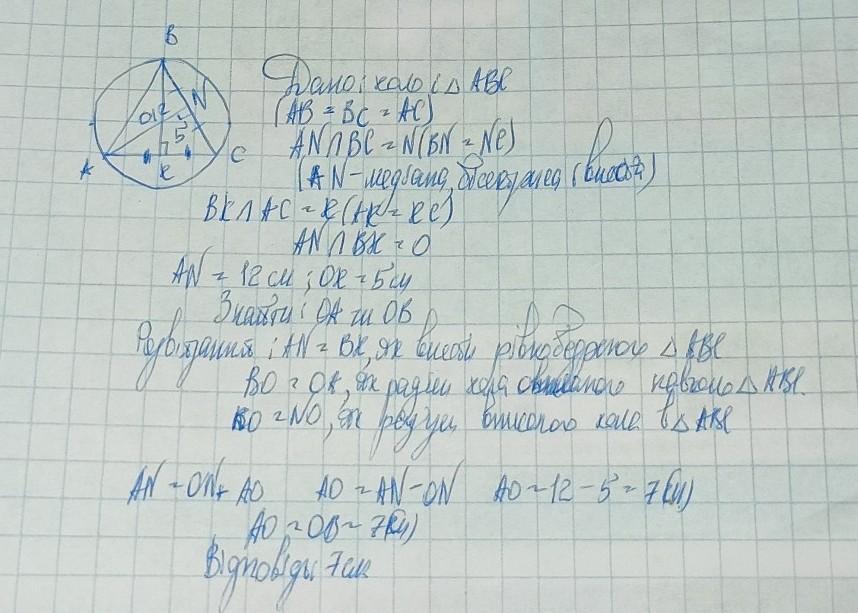 B
O 12 N
5 5
A C
K
Дано: коло і △ ABC
(AB = BC = AC)
AN ∩ BC = N (BN = NC)
(AN - медіана, бісектриса і висота)
BK ∩ AC = K (AK = KC)
AN ∩ BK = O
AN = 12 см ; OK = 5 см
Знайти: OA і OB
Розв'язання: AN = BK, як висоти рівнобедреного △ ABC
BO = OA, як радіуси кола описаного навколо △ ABC.
KO = NO, як радіуси вписаного кола в △ ABC
AN = ON + AO AO = AN - ON AO = 12 - 5 = 7 (см)
AO = OB = 7 (см)
Відповідь 7 см